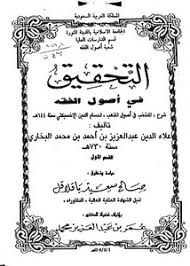 المملكة العربية السعودية
الجامعة الاسلامية بالمدينة المنورة
قسم الدراسات العليا
شعبة أصول الفقه
التحقيق
في أصول الفقه
شرح المنتخب في أصول المذهب، لحسام الدين الأخسيكثي سنة ٦٤٤هـ
تأليف:
علاء الدين عبدالعزيز بن أحمد بن محمد البخاري
سنة ٧٣٠هـ
القسم الأول
دراسة وتحقيق
صالح سعيد باقلاقل
لنيل الشهادة العالمية العالية - الدكتوراه
عمر بن عبد العزيز بن محمد